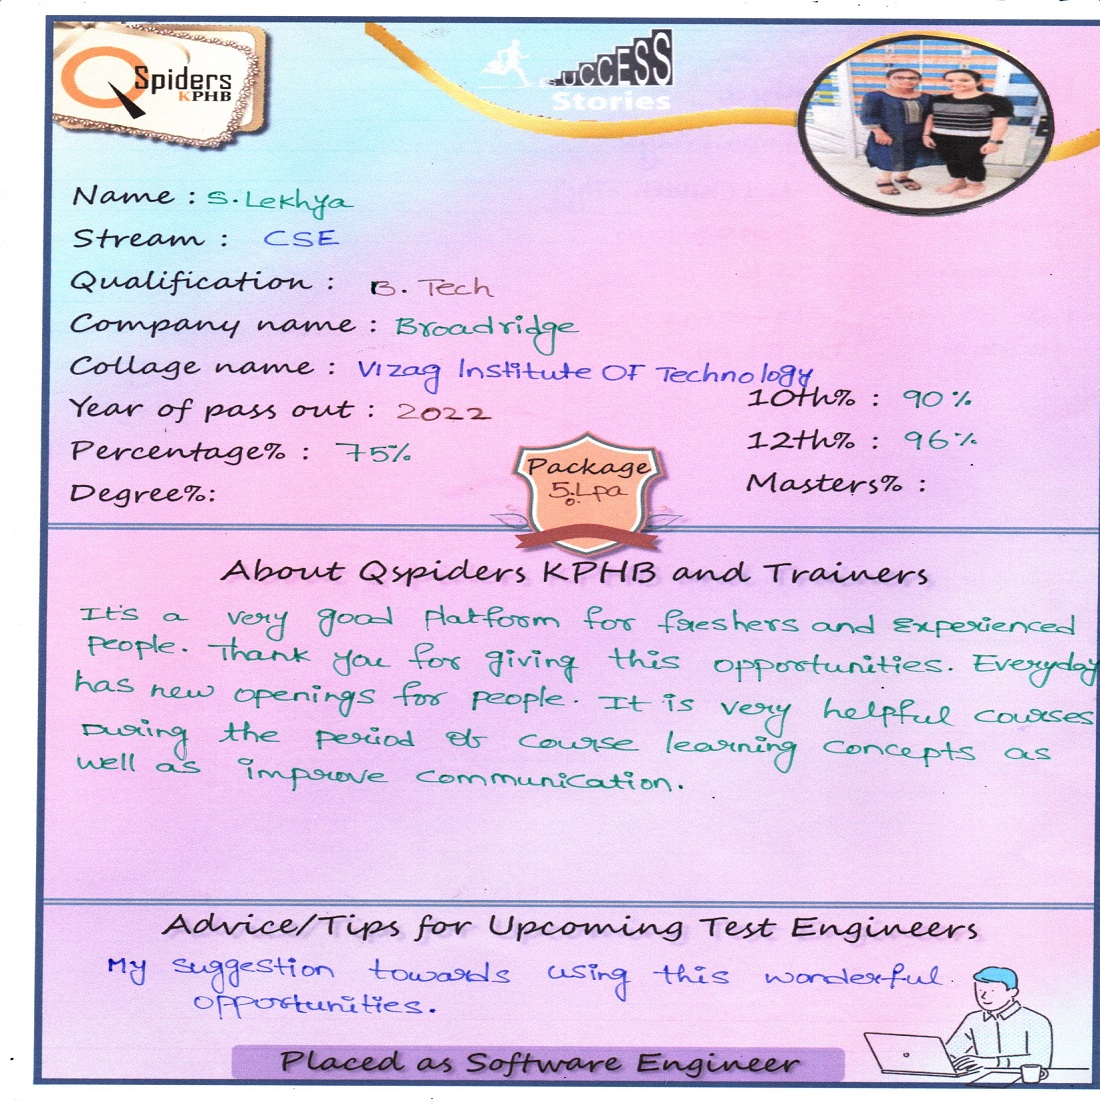 QSpiders
KPHB
SUCCESS
Stories
Name : S. Lekhya
Stream : CSE
Qualification : B. Tech
Company name : Broadridge
Collage name : Vizag Institute OF Technology
Year of pass out : 2022
10th% : 90%
Percentage% : 75%
12th% : 96%
Degree%:
Masters% :
Package
5.Lpa
About Qspiders KPHB and Trainers
It's a very good Platform for freshers and Experienced
People. Thank you for giving this opportunities. Everyday
has new openings for people. It is very helpful courses
During the period of course learning concepts as
well as improve communication.
Advice/Tips for Upcoming Test Engineers
My suggestion towards using this wonderful
opportunities.
Placed as Software Engineer